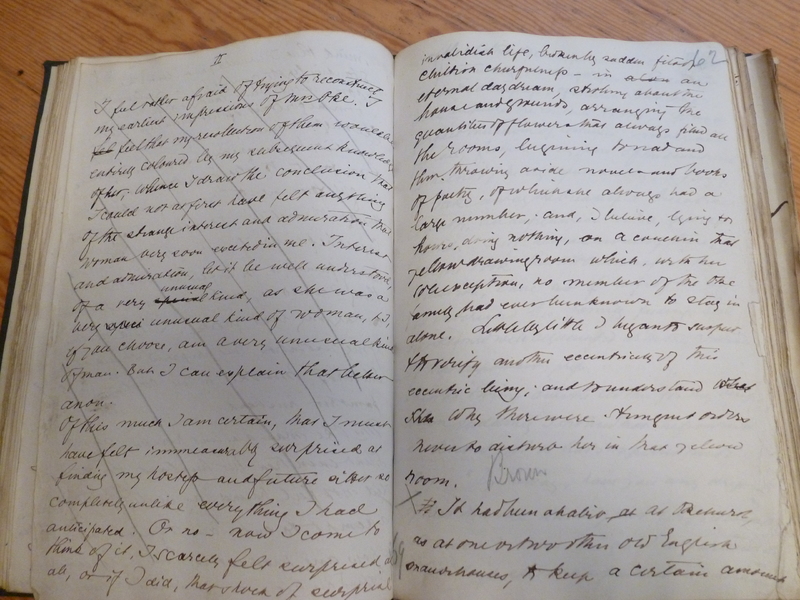 II
I feel rather afraid of trying to reconstruct
my earliest impressions of Mrs Oke. I
feel that my recollection of them would be
entirely coloured by my subsequent knowledge
of her, whence I draw the conclusion that
I could not at first have felt anything
of the strange interest and admiration that
woman very soon excited in me. Interest
and admiration, let it be well understood,
of a very unusual kind, as she was a
very unusual kind of woman, &, I,
if you choose, am a very unusual kind
of man. But I can explain that better
anon.
Of this much I am certain, that I must
have felt immeasurably surprised at
finding my hostess and future sitter so
completely unlike everything I had
anticipated. Or no – now I come to
think of it, I scarcely felt surprised at
all, or if I did, that shock of surprise
62
invalidish life, broken by sudden fits of
childish cheerfulness – in an
eternal daydream, strolling about the
house and grounds, arranging the
quantities of flowers that always filled all
the rooms, beginning to read and
then throwing aside novels and books
of poetry, of which she always had a
large number; and, I believe, lying for
hours, doing nothing, on a couch in that
yellow drawing room which, with her
sole exception, no member of the Oke
family had ever been known to stay in
alone. Little by little I began to suspect
& to verify another eccentricity of this
eccentric being; and to understand
why there were stringent orders
never to disturb her in that yellow
room.
Brown
It had been a habit at
as at one or two other old English
manorhouses, to keep a certain amount